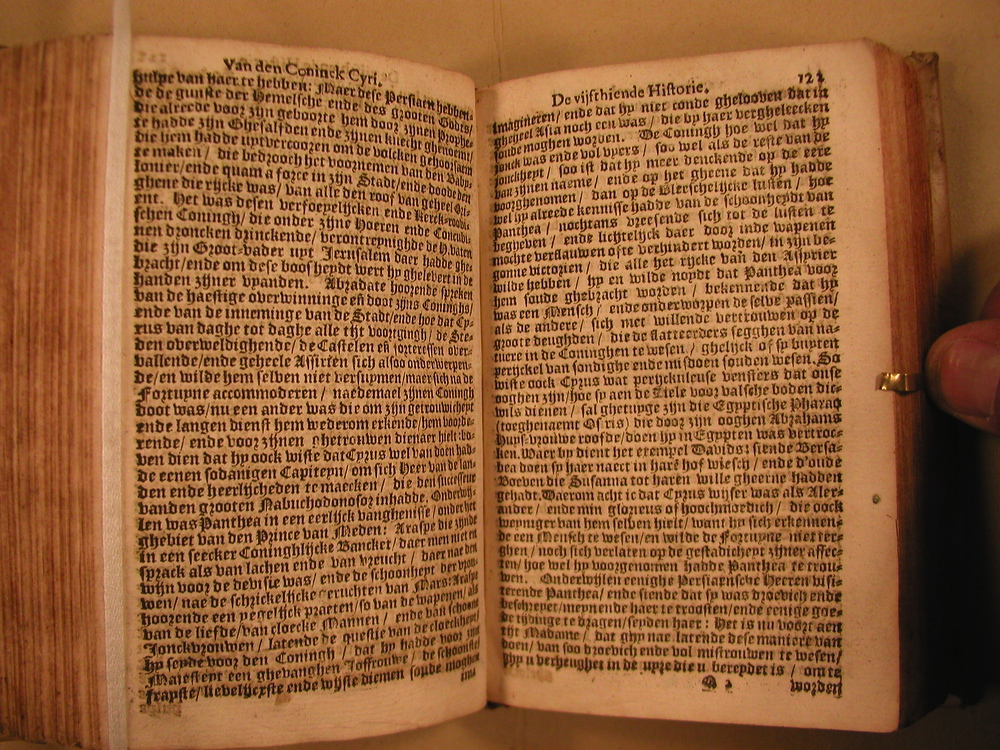 Van den Coninck Cyri.
hulpe van haer te hebben: Maer dese Persiaen hebben-
de de gunste der Hemelsche ende des grooten Godts/
die alreede voor zijn geboorte hem door zijnen Prophe-
te hadde zijn Ghesalfden ende zijnen knecht ghenoemt/
die hem hadde uptvercooren om de volcken gehoorsaem
te maken/ die bedrooch het voornemen van den Baby-
lonier/ende quam a force in zijn Stadt/ende doode den
ghene die rijcke was/ van alle den roof van geheel Ori-
ent. Het was desen verfoepelijcken ende Kerck-roovi-
schen Coningh/ die onder zijne Hoeren ende Concubi-
nen droncken drinckende/ verontreynighde de H.vaten
die zijn Groot-vader uyt Jerusalem daer hadde ghe-
bracht/ende om dese boosheydt wert hy ghelevert in de
handen zijner vyanden. Abradate hoorende spreken
van de haestige overwinninge eñ doot zijns Coninghs/
ende van de inneminge van de Stadt/ende hoe dat Cy-
rus van daghe tot daghe alle tijt voortgingh/ de Ste-
den overweldighende/ de Castelen eñ forteressen over-
vallende/ende geheele Assirien sich alsoo onderwerpen-
de/ en wilde hem selben niet versuymen/maer sich na de
Fortuyne accommoderen/ naedemael zijnen Coningh
doot was/nu een ander was die om zijn getrouwicheyt
ende langen dienst hem wederom erkende/hem voorde-
rende/ ende voor zijnen ghetrouwen dienaer hielt: bo-
ven dien dat hy oock wiste dat Cyrus wel van doen had-
de eenen sodanigen Capiteyn/ om sich Heer van de lan-
den ende heerlijcheden te maecken/ die den successeur
vanden grooten Nabuchodonosor inhadde. Onderwij-
len was Panthea in een eerlijck vanghenisse/ onder het
ghebiet van den Prince van Meden: Araspe die zijnde
in een seecker Coninghlijcke Bancket/ daer men niet en
sprack als van lachen ende van vreucht/ daer nae den
wijn voor de devisie was/ ende de schoonheyt der vrou-
wen/ nae de schrickelijcke vruchten van Mars: Araspe
hoorende een yegelijck praeten/ so van de wapenen/ als
van de liefde/ van cloecke Mannen/ ende van schoone
Jonckvrouwen/ latende de questie van de cloeckheyt/
hy seyde voor den Coningh/ dat hy hadde voor zijn
Majesteyt een ghevanghen Joffrouwe/ de schoonste/
fraeyste/ lievelijckste ende wijste diemen soude moghen
ima-
De vijfthiende Historie.
122
imagineren/ ende dat hy niet conde ghelooven dat in
gheheel Asia noch een was/ die by haer vergheleecken
soude moghen worden. De Coningh hoe wel dat hy
jonck was ende vol vyers/ soo wel als de reste van de
jonckheyt/ soo ist dat hy meer denckende op de eere
van zijnen naeme/ ende op het gheene dat hy hadde
voorghenomen/ dan op de Vleeschelijcke lusten/ hoe
wel hy alreede kennisse hadde van de schoonheydt van
Panthea/ nochtans vreesende sich tot de lusten te
begheven/ ende lichtelijck daer door inde wapenen
mochte verflauwen ofte verhindert worden/ in zijn be-
gonne victorien/ die alle het rijcke van den Assyrier
wilde hebben/ hy en wilde noydt dat Panthea voor
hem soude ghebracht worden/ bekennende dat hy
was een Mensch/ ende onderworpen de selve passien/
als de andere/ sich niet willende vertrouwen op de
groote deughden/ die de flatteerders segghen van na-
tuere in de Coninghen te wesen/ ghelijck of sy buyten
perijckel van sondighe ende misdoen souden wesen. So
wiste oock Cyrus wat perijckuleuse vensters dat onse
ooghen zijn/hoe sy aen de Ziele voor valsche boden dic-
wils dienen/ sal ghetuyge zijn die Egyptische Pharao
(toeghenaemt Osiris) die door zijn ooghen Abrahams
Huys-vrouwe roofde/doen hy in Egypten was vertroc-
ken. Waer by dient het exempel Davids: siende Bersa-
bea doen sy haer naect in harē hof wiesch/ ende d'oude
Boeven die Susanna tot haren wille gheerne hadden
gehadt. Daerom acht ic dat Cyrus wijser was als Alex-
ander/ ende min glorieus of hoochmoedich/ die oock
weyniger van hem selben hielt/ want hy sich erkennen-
de een Mensch te wesen/en wilde de Fortuyne niet ter-
ghen/ noch sich verlaten op de gestadicheyt zijner affec-
ten/ hoe wel hy voorgenomen hadde Panthea te trou-
wen. Onderwijlen eenighe Persiaensche Heeren visi-
terende Panthea/ ende siende dat sy was droevich ende
beschreyet/meynende haer te troosten/ende eenige goe-
de tijdinge te dragen/seyden haer: Het is nu voort aen
tijt Madame/ dat ghy nae latende dese maniere van
doen/ van soo droevich ende vol mistrouwen te wesen/
ghy u verheughet in de uyre die u bereydet is/ om te
Q 2
worden